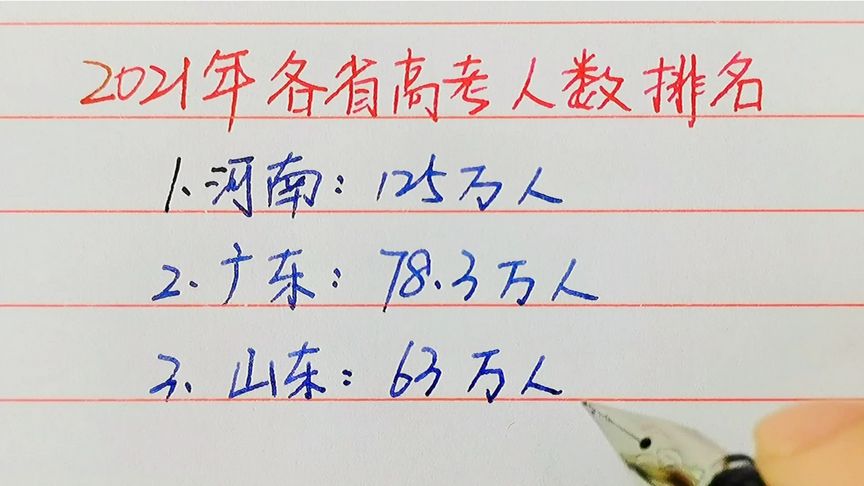 2021年各省高考人数排名
1、河南：125万人
2、广东：78.3万人
3、山东：63万人